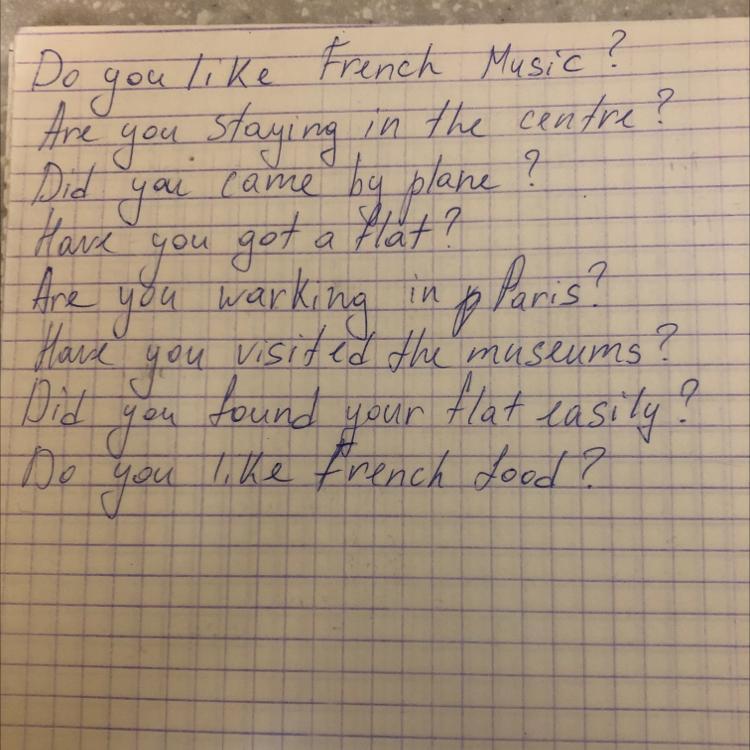 Do you like French Music?
Are you staying in the centre?
Did you came by plane?
Have you got a flat?
Are you warking in p Paris?
Have you visited the museums?
Did you found your flat easily?
Do you like French food?